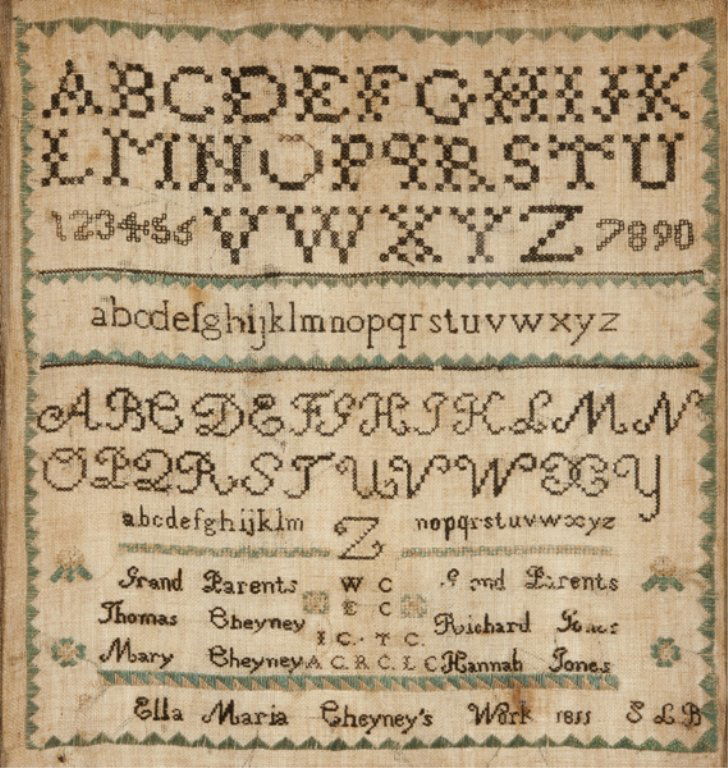 ABCDEFGHIJK
LMNOPQRSTU
123456 VWXYZ 7890
abcdefghijklmnopqrstuvwxyz
ABCDEFGHIJKLMN
OPQRSTUVWXY
abcdefghijklm Z nopqrstuvwxyz
Grand Parents W C Grand Parents
Thomas Cheyney E C Richard Jones
I C. T C.
Mary Cheyney A C. R C. L C Hannah Jones
Ella Maria Cheyney's Work S L B